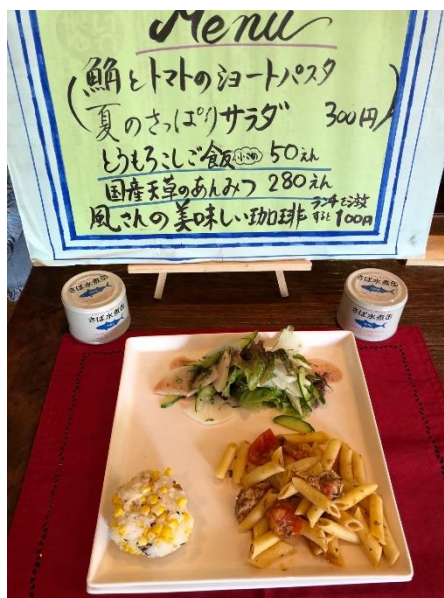 Menu
鯖とトマトのショートパスタ
夏のさっぱりサラダ 300円
とうもろこしご飯 小さめ 50えん
国産天草のあんみつ 280えん
風さんの美味しい珈琲 ランチでご注文すると100円
さば水煮缶
さば水煮缶